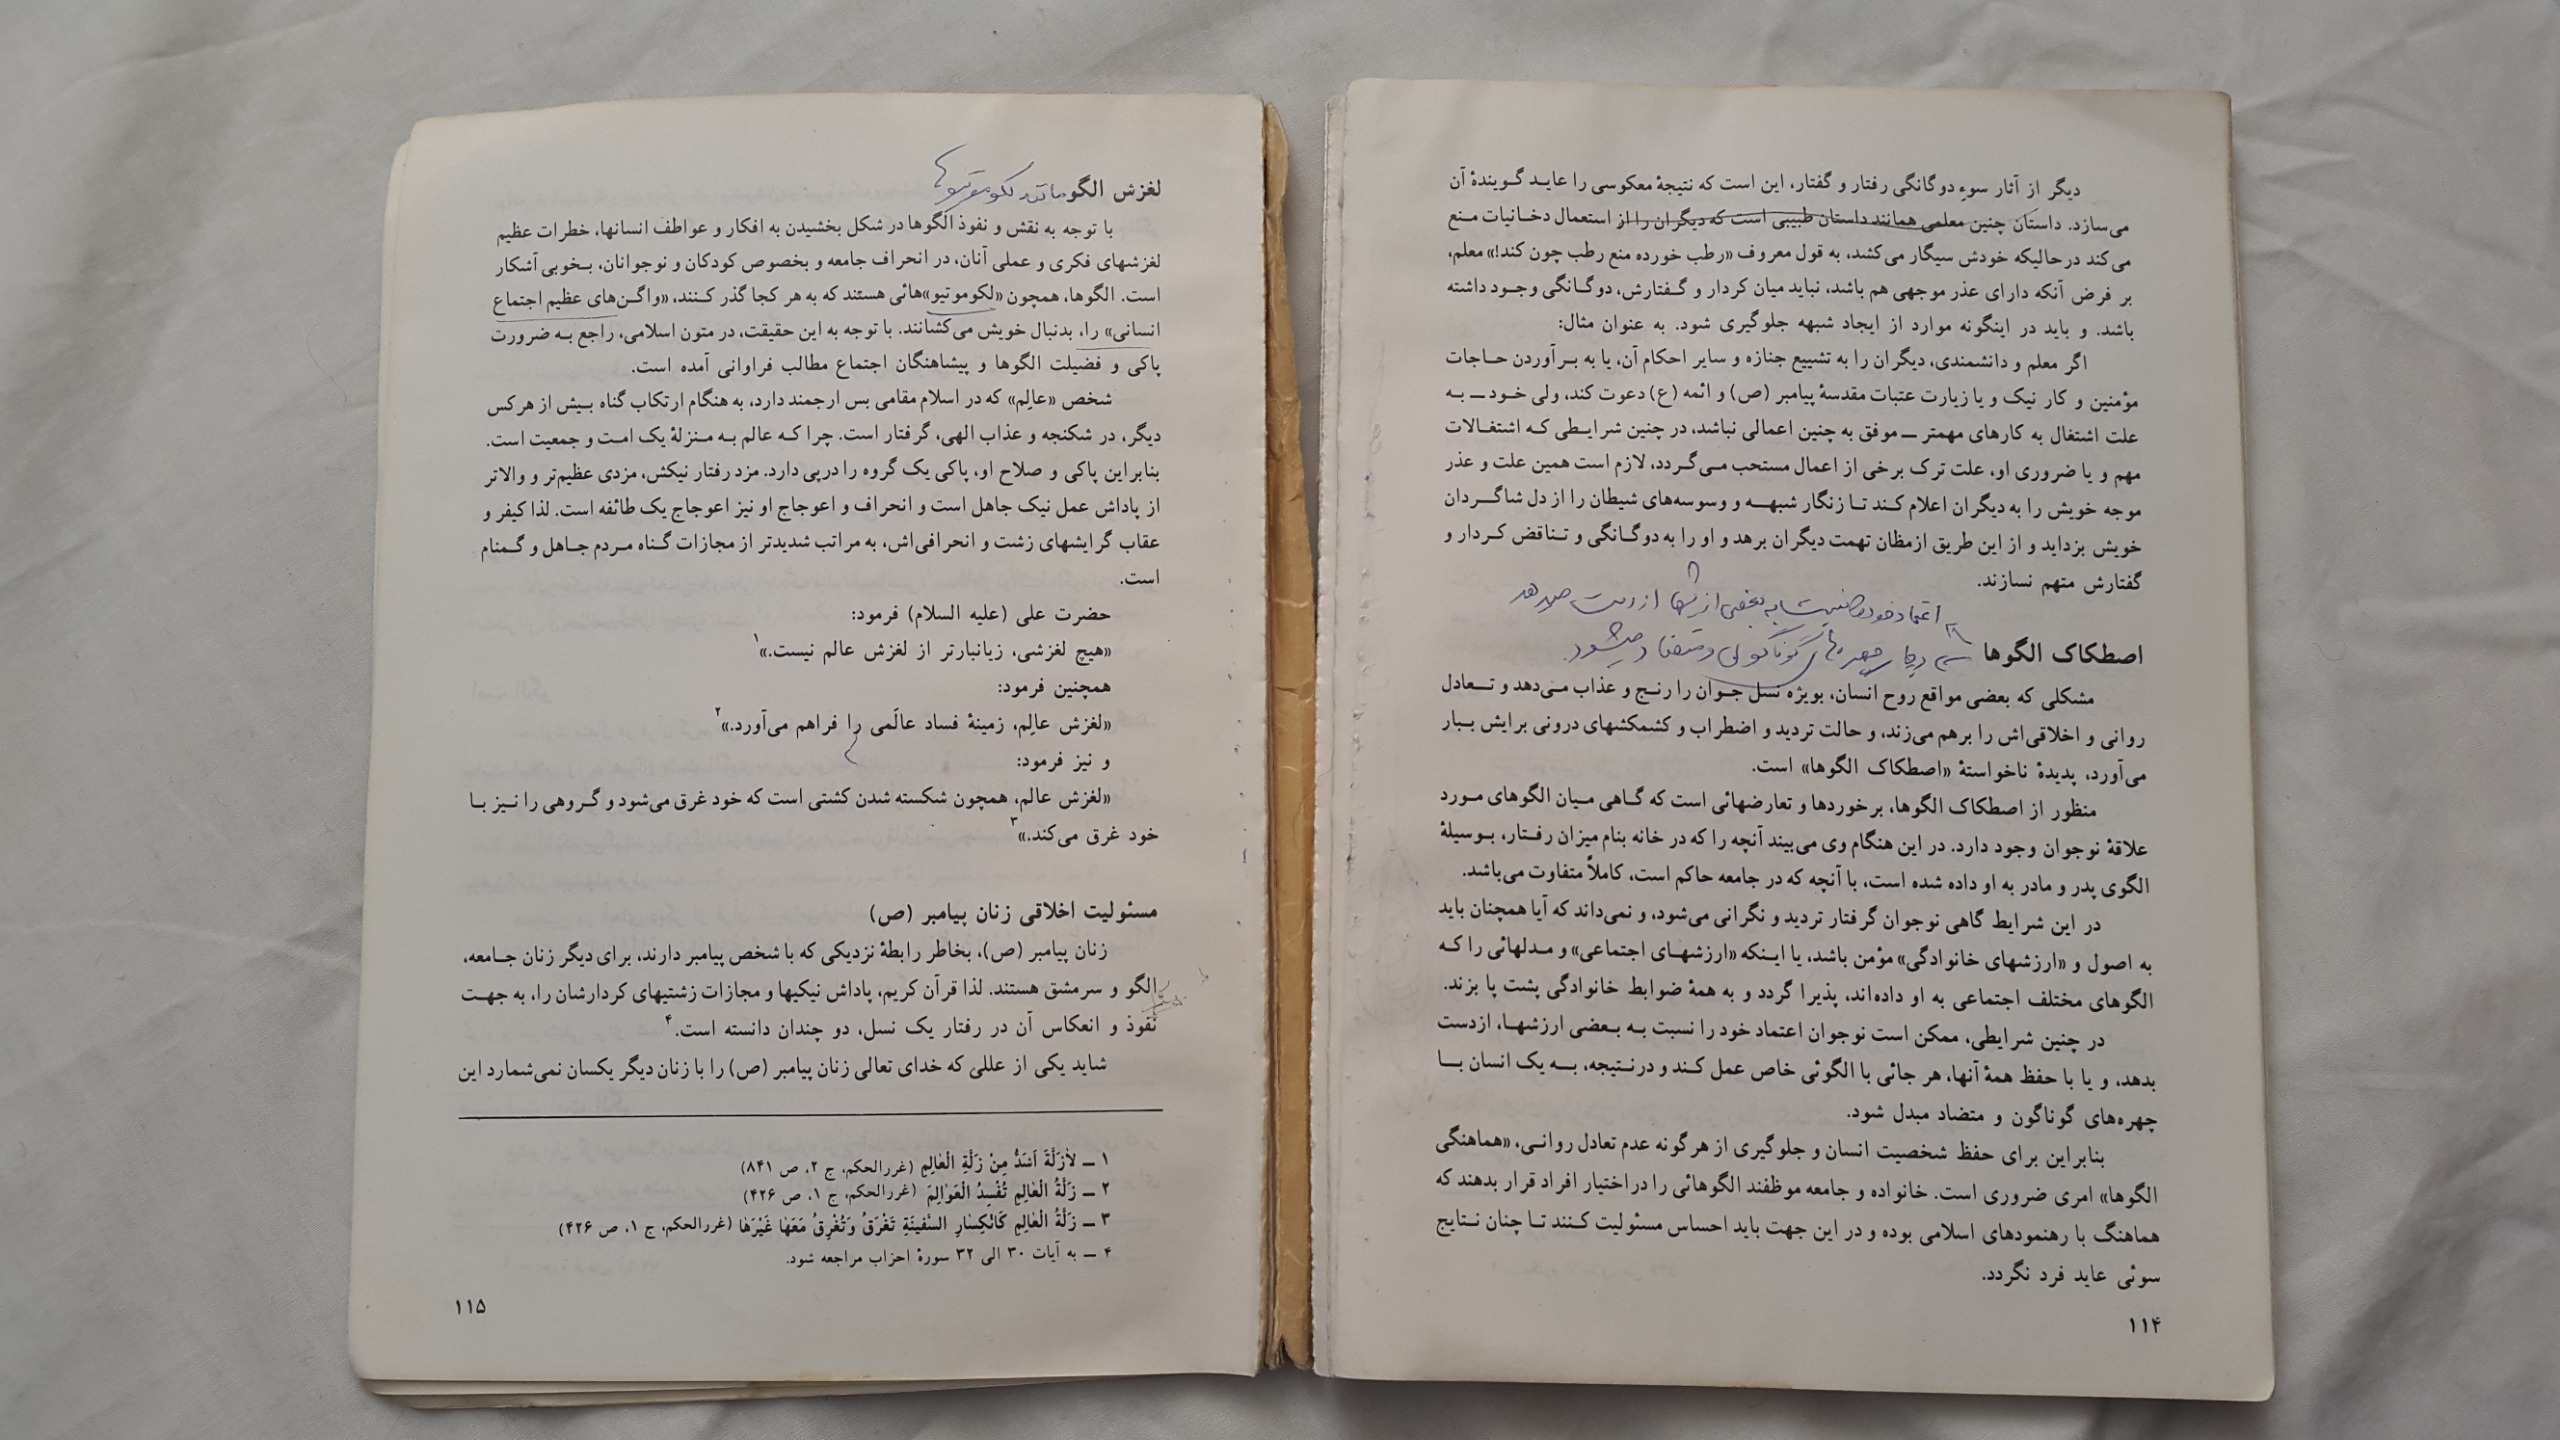 دیگر از آثار سوءِ دوگانگی رفتار و گفتار، این است که نتیجهٔ معکوسی را عاید گویندهٔ آن
می‌سازد. داستان چنین معلمی همانند داستان طبیبی است که دیگران را از استعمال دخانیات منع
می‌کند درحالیکه خودش سیگار می‌کشد، به قول معروف «رطب خورده منع رطب چون کند!» معلم،
بر فرض آنکه دارای عذر موجهی هم باشد، نباید میان کردار و گفتارش، دوگانگی وجود داشته
باشد. و باید در اینگونه موارد از ایجاد شبهه جلوگیری شود. به عنوان مثال:
اگر معلم و دانشمندی، دیگران را به تشییع جنازه و سایر احکام آن، یا به برآوردن حاجات
مؤمنین و کار نیک و یا زیارت عتبات مقدسهٔ پیامبر (ص) و ائمه (ع) دعوت کند، ولی خود ــ به
علت اشتغال به کارهای مهمتر ــ موفق به چنین اعمالی نباشد، در چنین شرایطی که اشتغالات
مهم و یا ضروری او، علت ترک برخی از اعمال مستحب می‌گردد، لازم است همین علت و عذر
موجه خویش را به دیگران اعلام کند تا زنگار شبهه و وسوسه‌های شیطان را از دل شاگردان
خویش بزداید و از این طریق ازمظان تهمت دیگران برهد و او را به دوگانگی و تناقض کردار و
گفتارش متهم نسازند.
اعتماد خود را نسبت به بعضی ارزشها از دست می‌دهد
اصطکاک الگوها دچار چهره‌های گوناگون و متضاد میشود.
مشکلی که بعضی مواقع روح انسان، بویژه نسل جوان را رنج و عذاب می‌دهد و تعادل
روانی و اخلاقی‌اش را برهم می‌زند، و حالت تردید و اضطراب و کشمکشهای درونی برایش ببار
می‌آورد، پدیدهٔ ناخواستهٔ «اصطکاک الگوها» است.
منظور از اصطکاک الگوها، برخوردها و تعارضهائی است که گاهی میان الگوهای مورد
علاقهٔ نوجوان وجود دارد. در این هنگام وی می‌بیند آنچه را که در خانه بنام میزان رفتار، بوسیلهٔ
الگوی پدر و مادر به او داده شده است، با آنچه که در جامعه حاکم است، کاملاً متفاوت می‌باشد.
در این شرایط گاهی نوجوان گرفتار تردید و نگرانی می‌شود، و نمی‌داند که آیا همچنان باید
به اصول و «ارزشهای خانوادگی» مؤمن باشد، یا اینکه «ارزشهای اجتماعی» و مدلهائی را که
الگوهای مختلف اجتماعی به او داده‌اند، پذیرا گردد و به همهٔ ضوابط خانوادگی پشت پا بزند.
در چنین شرایطی، ممکن است نوجوان اعتماد خود را نسبت به بعضی ارزشها، ازدست
بدهد، و یا با حفظ همهٔ آنها، هر جائی با الگوئی خاص عمل کند و درنتیجه، به یک انسان با
چهره‌های گوناگون و متضاد مبدل شود.
بنابراین برای حفظ شخصیت انسان و جلوگیری از هرگونه عدم تعادل روانی، «هماهنگی
الگوها» امری ضروری است. خانواده و جامعه موظفند الگوهائی را دراختیار افراد قرار بدهند که
هماهنگ با رهنمودهای اسلامی بوده و در این جهت باید احساس مسئولیت کنند تا چنان نتایج
سوئی عاید فرد نگردد.
۱۱۴
لغزش الگو مانند لکوموتیوها
با توجه به نقش و نفوذ الگوها در شکل بخشیدن به افکار و عواطف انسانها، خطرات عظیم
لغزشهای فکری و عملی آنان، در انحراف جامعه و بخصوص کودکان و نوجوانان، بخوبی آشکار
است. الگوها، همچون «لکوموتیو»هائی هستند که به هر کجا گذر کنند، «واگن‌های عظیم اجتماع
انسانی» را، بدنبال خویش می‌کشانند. با توجه به این حقیقت، در متون اسلامی، راجع به ضرورت
پاکی و فضیلت الگوها و پیشاهنگان اجتماع مطالب فراوانی آمده است.
شخص «عالِم» که در اسلام مقامی بس ارجمند دارد، به هنگام ارتکاب گناه بیش از هرکس
دیگر، در شکنجه و عذاب الهی، گرفتار است. چرا که عالم به منزلهٔ یک امت و جمعیت است.
بنابراین پاکی و صلاح او، پاکی یک گروه را درپی دارد. مزد رفتار نیکش، مزدی عظیم‌تر و والاتر
از پاداش عمل نیک جاهل است و انحراف و اعوجاج او نیز اعوجاج یک طائفه است. لذا کیفر و
عقاب گرایشهای زشت و انحرافی‌اش، به مراتب شدیدتر از مجازات گناه مردم جاهل و گمنام
است.
حضرت علی (علیه السلام) فرمود:
«هیچ لغزشی، زیانبارتر از لغزش عالم نیست.»۱
همچنین فرمود:
«لغزش عالِم، زمینهٔ فساد عالَمی را فراهم می‌آورد.»۲
و نیز فرمود:
«لغزش عالم، همچون شکسته شدن کشتی است که خود غرق می‌شود و گروهی را نیز با
خود غرق می‌کند.»۳
مسئولیت اخلاقی زنان پیامبر (ص)
زنان پیامبر (ص)، بخاطر رابطهٔ نزدیکی که با شخص پیامبر دارند، برای دیگر زنان جامعه،
الگو و سرمشق هستند. لذا قرآن کریم، پاداش نیکیها و مجازات زشتیهای کردارشان را، به جهت
نفوذ و انعکاس آن در رفتار یک نسل، دو چندان دانسته است.۴
شاید یکی از عللی که خدای تعالی زنان پیامبر (ص) را با زنان دیگر یکسان نمی‌شمارد این
۱ ــ لاٰزَلَّةَ اَشَدُّ مِنْ زَلَّةِ الْعٰالِمِ (غررالحکم، ج ۲، ص ۸۴۱)
۲ ــ زَلَّةُ الْعٰالِمِ تُفْسِدُ الْعَوٰالِمَ (غررالحکم، ج ۱، ص ۴۲۶)
۳ ــ زَلَّةُ الْعٰالِمِ كَانْكِسٰارِ السَّفينَةِ تَغْرَقُ وَتُغْرِقُ مَعَهٰا غَيْرَهٰا (غررالحکم، ج ۱، ص ۴۲۶)
۴ ــ به آیات ۳۰ الی ۳۲ سورهٔ احزاب مراجعه شود.
۱۱۵